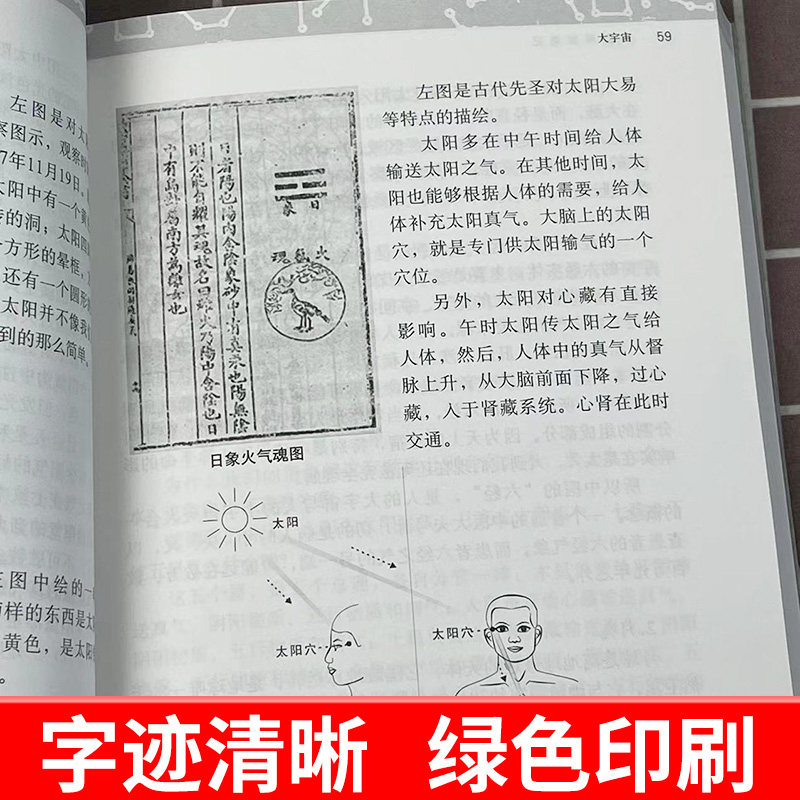 大宇宙 59
左图是对太
察图示，观察
7年11月19日。
太阳中有一个
的洞；太阳
方形的晕框，
还有一个圆形
太阳并不像我
到的那么简单。
图中绘的一
两样的东西是太
黄色，是太阳
日象
火氣魂
日者陽也陽内含陰象砂中有真汞也陽無陰
則不能自耀其魂故名曰雄火乃陽中含陰也日
中有烏卦屬南方為離女也
日象火气魂图
左图是古代先圣对太阳大易
等特点的描绘。
太阳多在中午时间给人体
输送太阳之气。在其他时间，太
阳也能够根据人体的需要，给人
体补充太阳真气。大脑上的太阳
穴，就是专门供太阳输气的一个
穴位。
另外，太阳对心藏有直接
影响。午时太阳传太阳之气给
人体，然后，人体中的真气从督
脉上升，从大脑前面下降，过心
藏，入于肾藏系统。心肾在此时
交通。
太阳
太阳穴
太阳穴
字迹清晰 绿色印刷